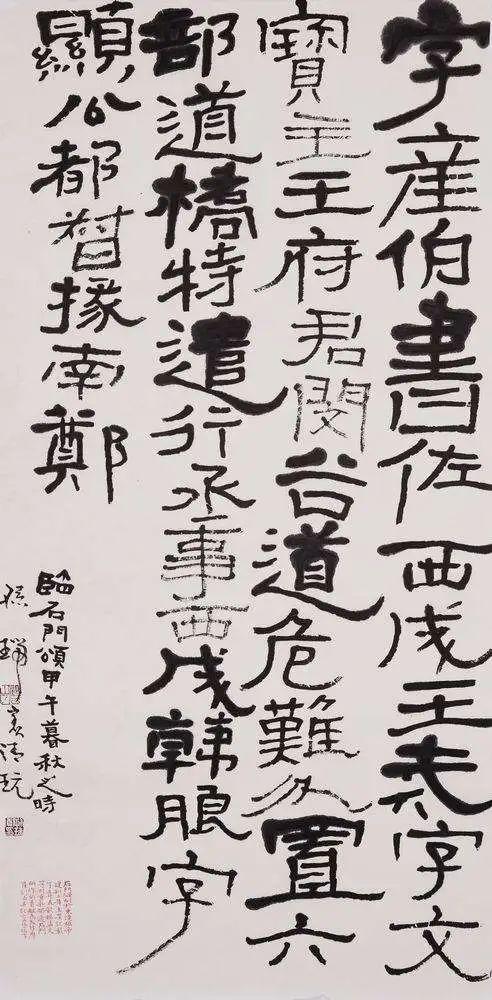 字產伯書佐西成王戒字文
寶主王府君閔谷道危難分置六
部道橋特遣行丞事西成韓朖字
顯公都督掾南鄭
臨石門頌甲午暮秋之時